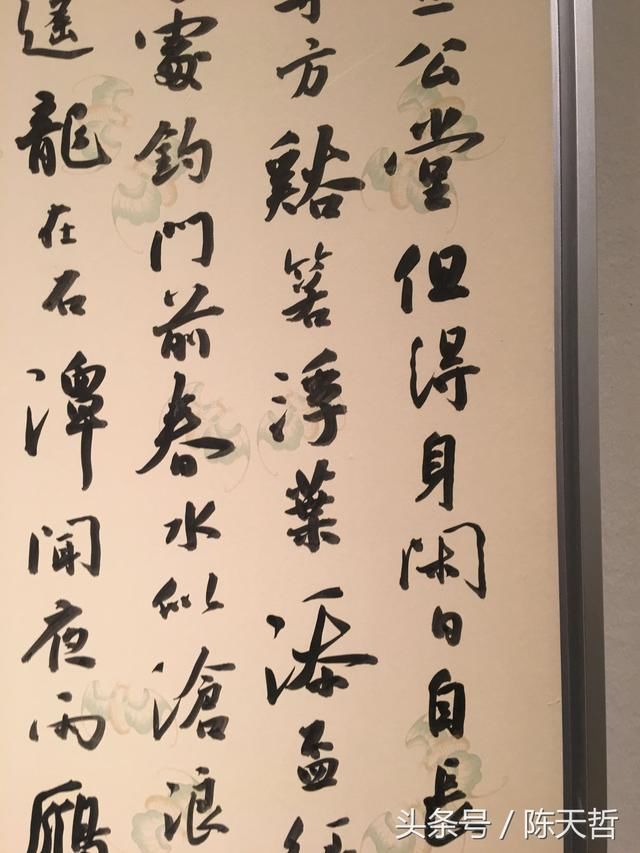 公堂但得身閑日自長
方谿箬浮葉添盃
處釣門前春水似滄浪
遥龍在石潭聞夜雨鴈
头条号 / 陈天哲